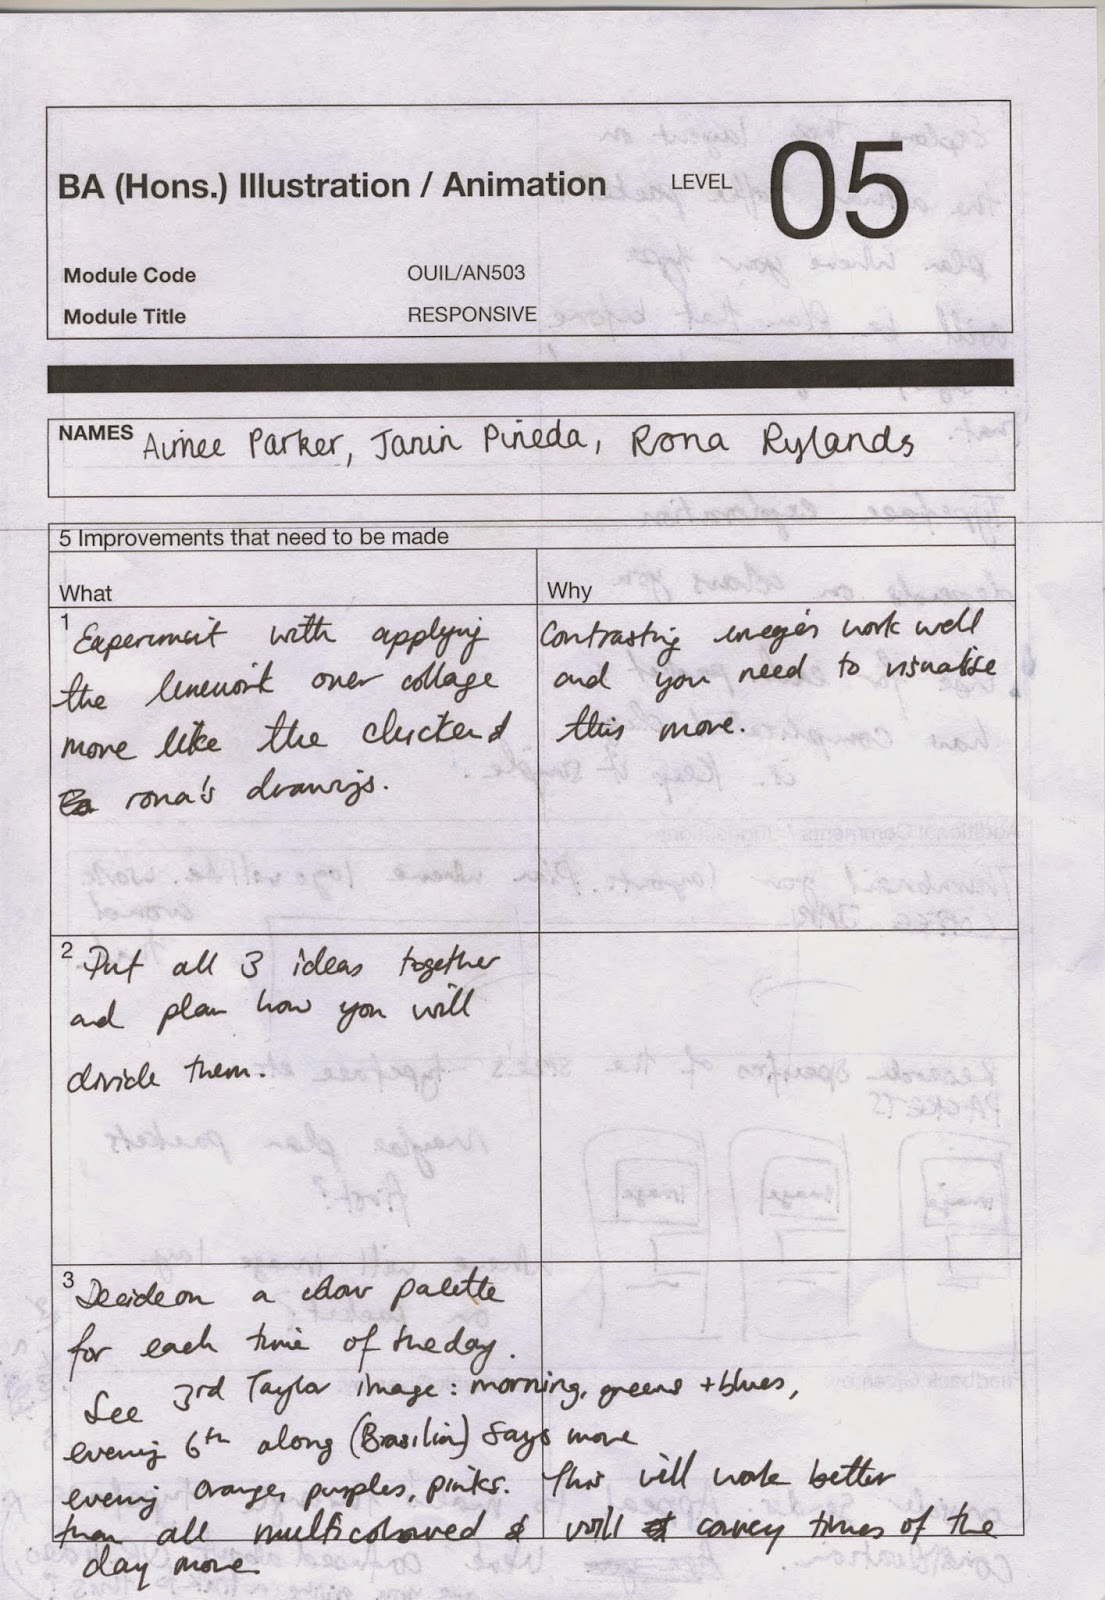 BA (Hons.) Illustration / Animation LEVEL 05
Module Code OUIL/AN503
Module Title RESPONSIVE
NAMES Aimee Parker, Janin Pineda, Rona Rylands
5 Improvements that need to be made
What Why
1 Experiment with applying
the linework over collage
more like the chicken &
rona's drawings.
Contrasting images work well
and you need to visualise
this more.
2 Put all 3 ideas together
and plan how you will
divide them.
3 Decide on a colour palette
for each time of the day.
See 3rd Taylor image: morning, greens + blues,
evening 6th along (Brasilia) says more
evening orange, purples, pinks. This will work better
than all multicoloured & will convey times of the
day more.